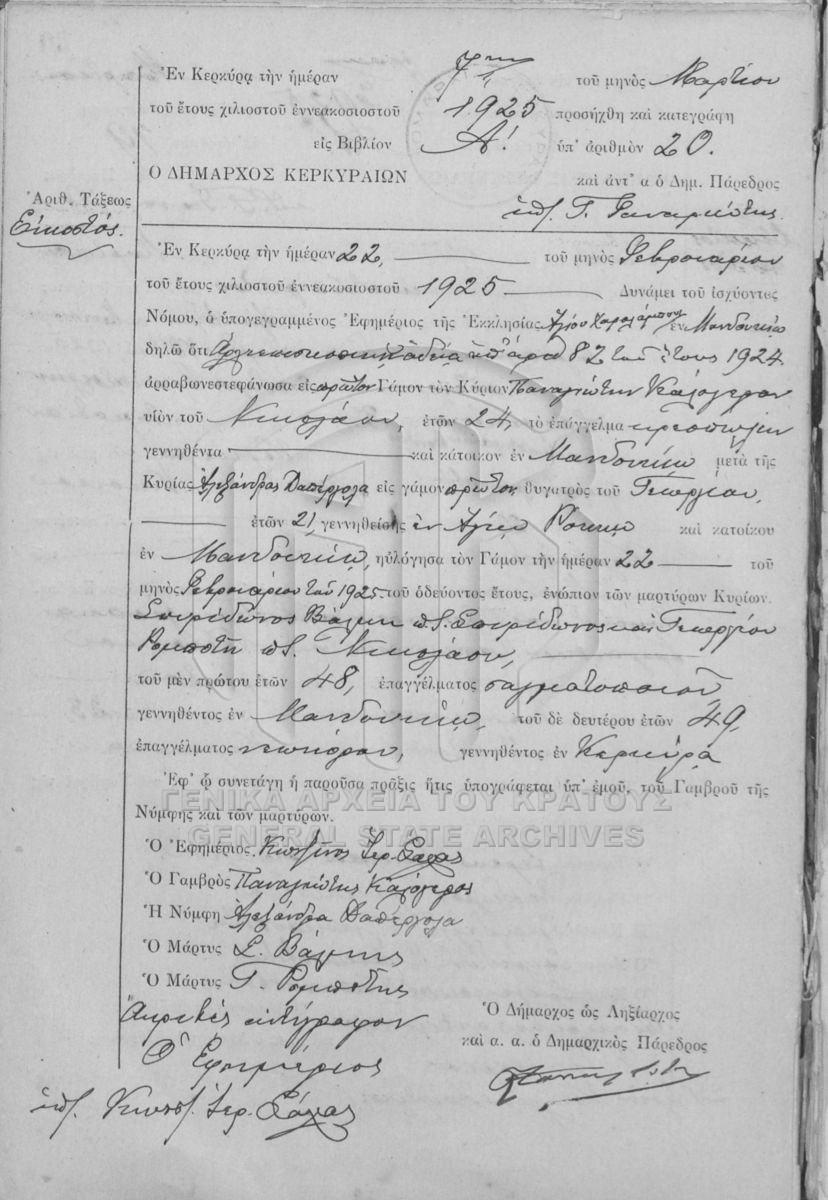 Ἐν Κερκύρᾳ τὴν ἡμέραν 7ην τοῦ μηνὸς Μαρτίου
τοῦ ἔτους χιλιοστοῦ ἐννεακοσιοστοῦ 1925 προσήχθη καὶ κατεγράφη
εἰς Βιβλίον Α! ὑπ' ἀριθμὸν 20.
Ο ΔΗΜΑΡΧΟΣ ΚΕΡΚΥΡΑΙΩΝ καὶ ἀντ' α ὁ Δημ. Πάρεδρος
Ἀριθ. Τάξεως
Εἰκοστός.
ὑπ. Γ.
Ἐν Κερκύρᾳ τὴν ἡμέραν 22, τοῦ μηνὸς Φεβρουαρίου
τοῦ ἔτους χιλιοστοῦ ἐννεακοσιοστοῦ 1925 Δυνάμει τοῦ ἰσχύοντος
Νόμου, ὁ ὑπογεγραμμένος Ἐφημέριος τῆς Ἐκκλησίας Ἁγίου Χαραλάμπους ἐν Μανδουκίῳ
δηλῶ ὅτι Ἀρχιεπισκοπικῇ ἀδείᾳ ὑπ' ἀριθ 82 τοῦ ἔτους 1924
ἀρραβωνεστεφάνωσα εἰς πρῶτον Γάμον τὸν Κύριον Παναγιώτην Καλόγερον
υἱὸν τοῦ Νικολάου, ἐτῶν 24, τὸ ἐπάγγελμα κρεοπώλην
γεννηθέντα καὶ κάτοικον ἐν Μανδουκίῳ μετὰ τῆς
Κυρίας Ἀλεξάνδρας Δαπέργολα εἰς γάμον πρῶτον, θυγατρὸς τοῦ Γεωργίου,
ἐτῶν 21, γεννηθείσης ἐν Ἁγίῳ Ρόκκῳ καὶ κατοίκου
ἐν Μανδουκίῳ, ηὐλόγησα τὸν Γάμον τὴν ἡμέραν 22 τοῦ
μηνὸς Φεβρουαρίου τοῦ 1925. τοῦ ὁδεύοντος ἔτους, ἐνώπιον τῶν μαρτύρων Κυρίων.
Σπυρίδωνος Βάλμη π.S. Σπυρίδωνος καὶ Γεωργίου
Ρομποτῆ π.S. Νικολάου,
τοῦ μὲν πρώτου ἐτῶν 48, ἐπαγγέλματος σαγματοποιοῦ,
γεννηθέντος ἐν Μανδουκίῳ, τοῦ δὲ δευτέρου ἐτῶν 49,
ἐπαγγέλματος γεννηθέντος ἐν Κερκύρᾳ
Ἐφ' ᾧ συνετάγη ἡ παροῦσα πρᾶξις ἥτις ὑπογράφεται ὑπ' ἐμοῦ, τοῦ Γαμβροῦ τῆς
Νύμφης καὶ τῶν μαρτύρων.
ΓΕΝΙΚΑ ΑΡΧΕΙΑ ΤΟΥ ΚΡΑΤΟΥΣ
GENERAL STATE ARCHIVES
Ὁ Ἐφημέριος Ἱερ.
Ὁ Γαμβρὸς Παναγιώτης Καλόγερος
Ἡ Νύμφη Ἀλεξάνδρα Δαπέργολα
Ὁ Μάρτυς Σ. Βάλμης
Ὁ Μάρτυς Γ. Ρομποτῆς
Ἀκριβές ἀντίγραφον
Ὁ Ἐφημέριος
ὑπ. Ἱερ.
Ὁ Δήμαρχος ὡς Ληξίαρχος
καὶ α. α. ὁ Δημαρχικὸς Πάρεδρος